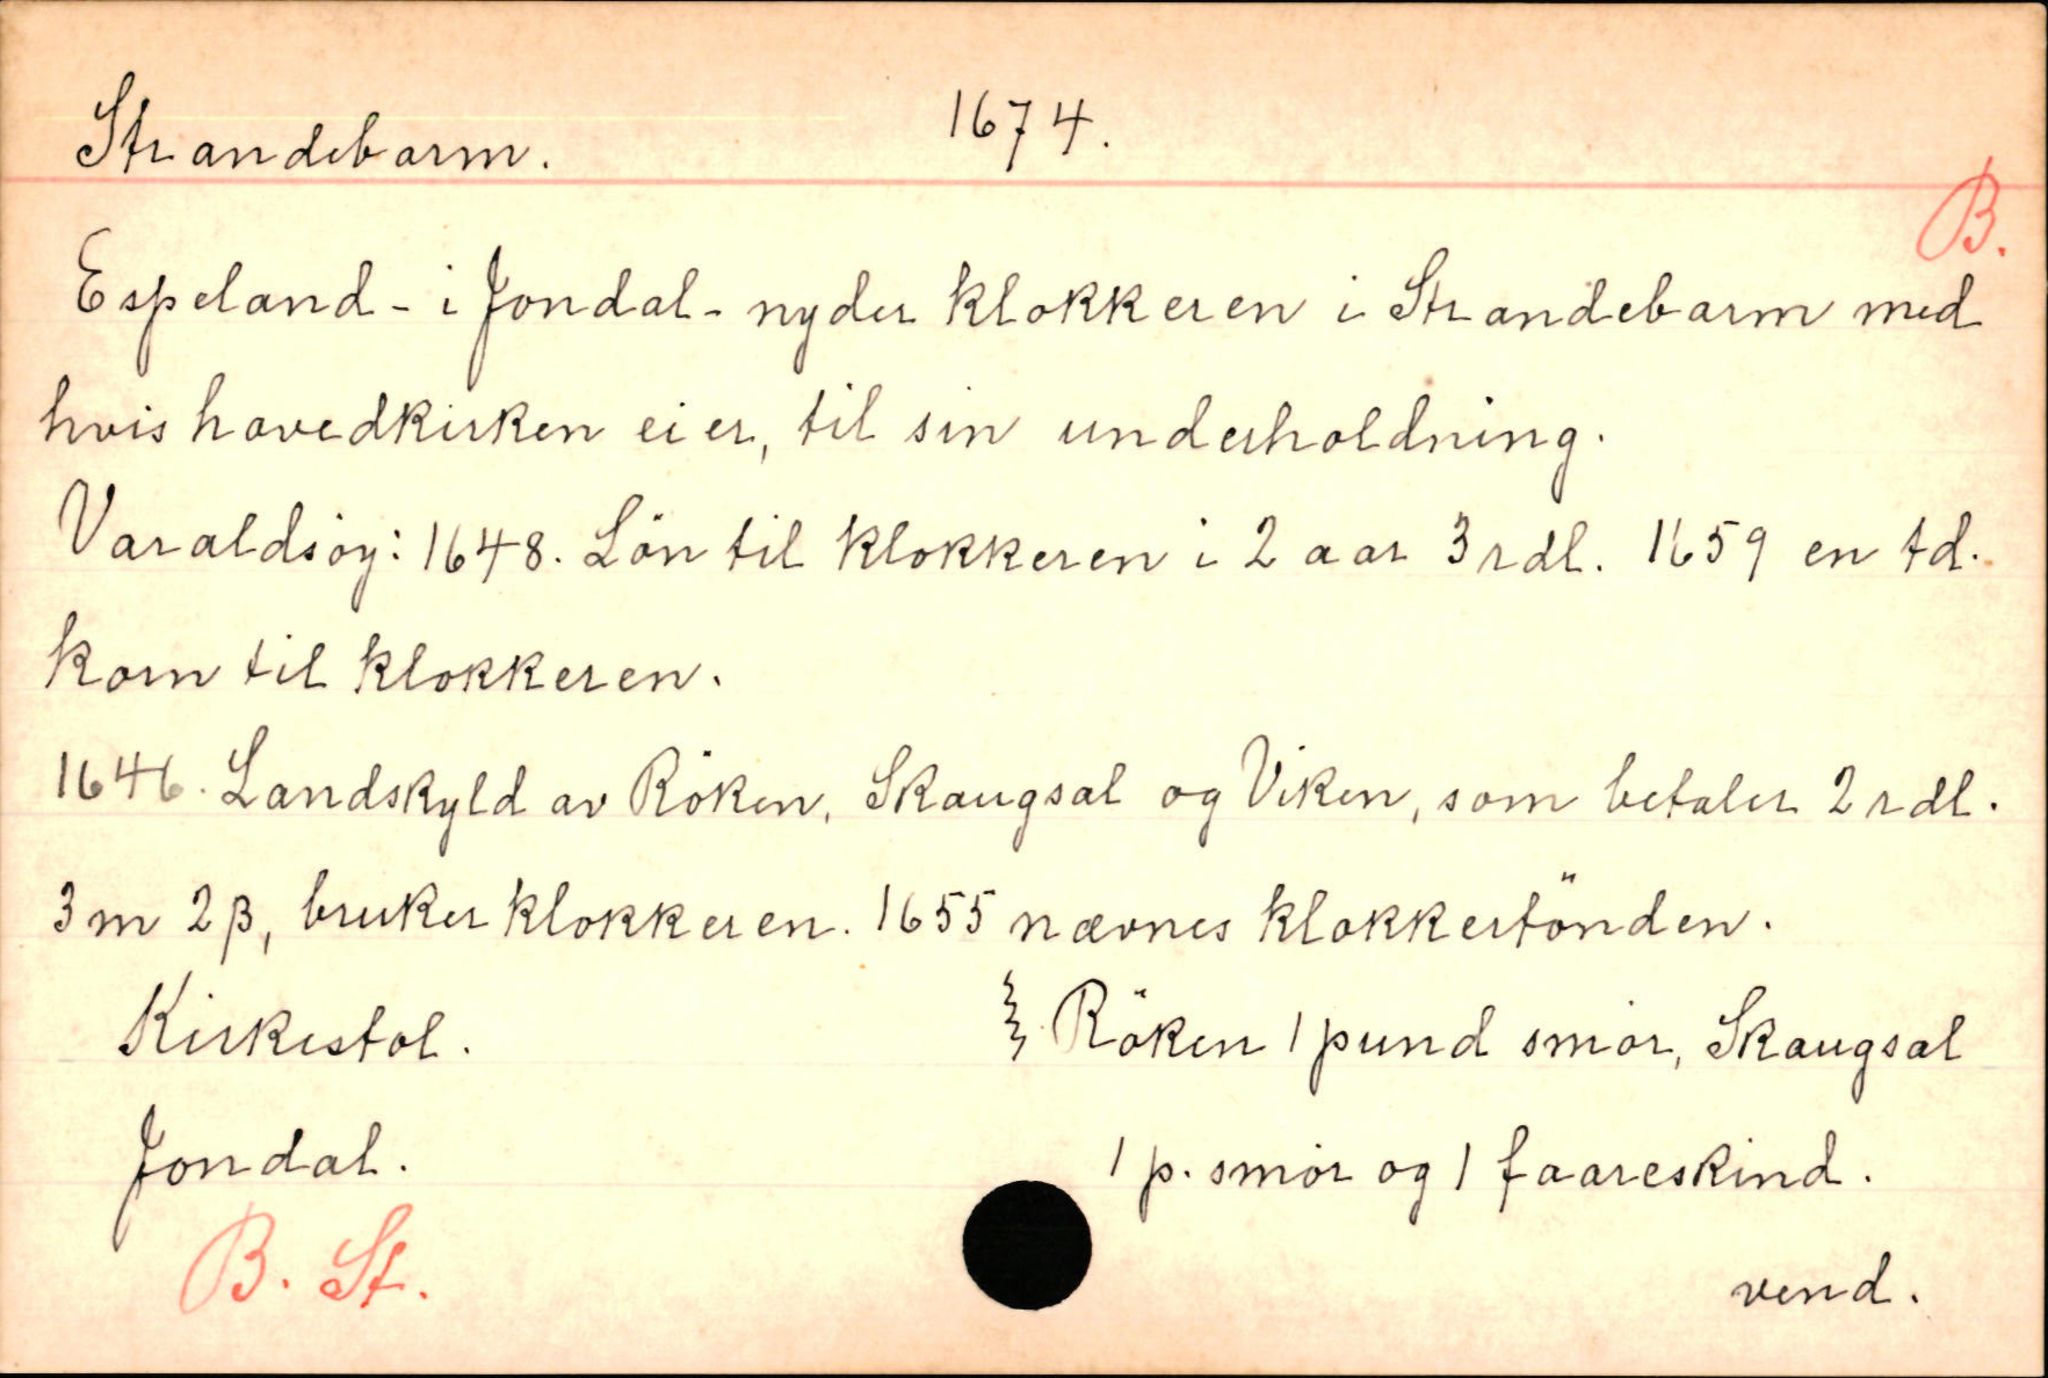 Strandebarm. 1674.
B.
Espeland - i Jondal - nyder klokkeren i Strandebarm med
hvis hovedkirken eier, til sin underholdning.
Varaldsöy: 1648. Lön til klokkeren i 2 aar 3 rdl. 1659 en td.
korn til klokkeren.
1646. Landskyld av Röken, Skaugsal og Viken, som betaler 2 rdl.
3 m 2 β, bruker klokkeren. 1655 nævnes klokkertönden.
Kirkestol. Röken 1 pund smör, Skaugsal
Jondal. 1 p. smör og 1 faareskind.
B. St. vend.